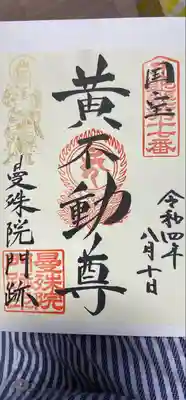 国宝
黄不動尊
曼殊院門跡
令和四年
八月十日
曼殊院